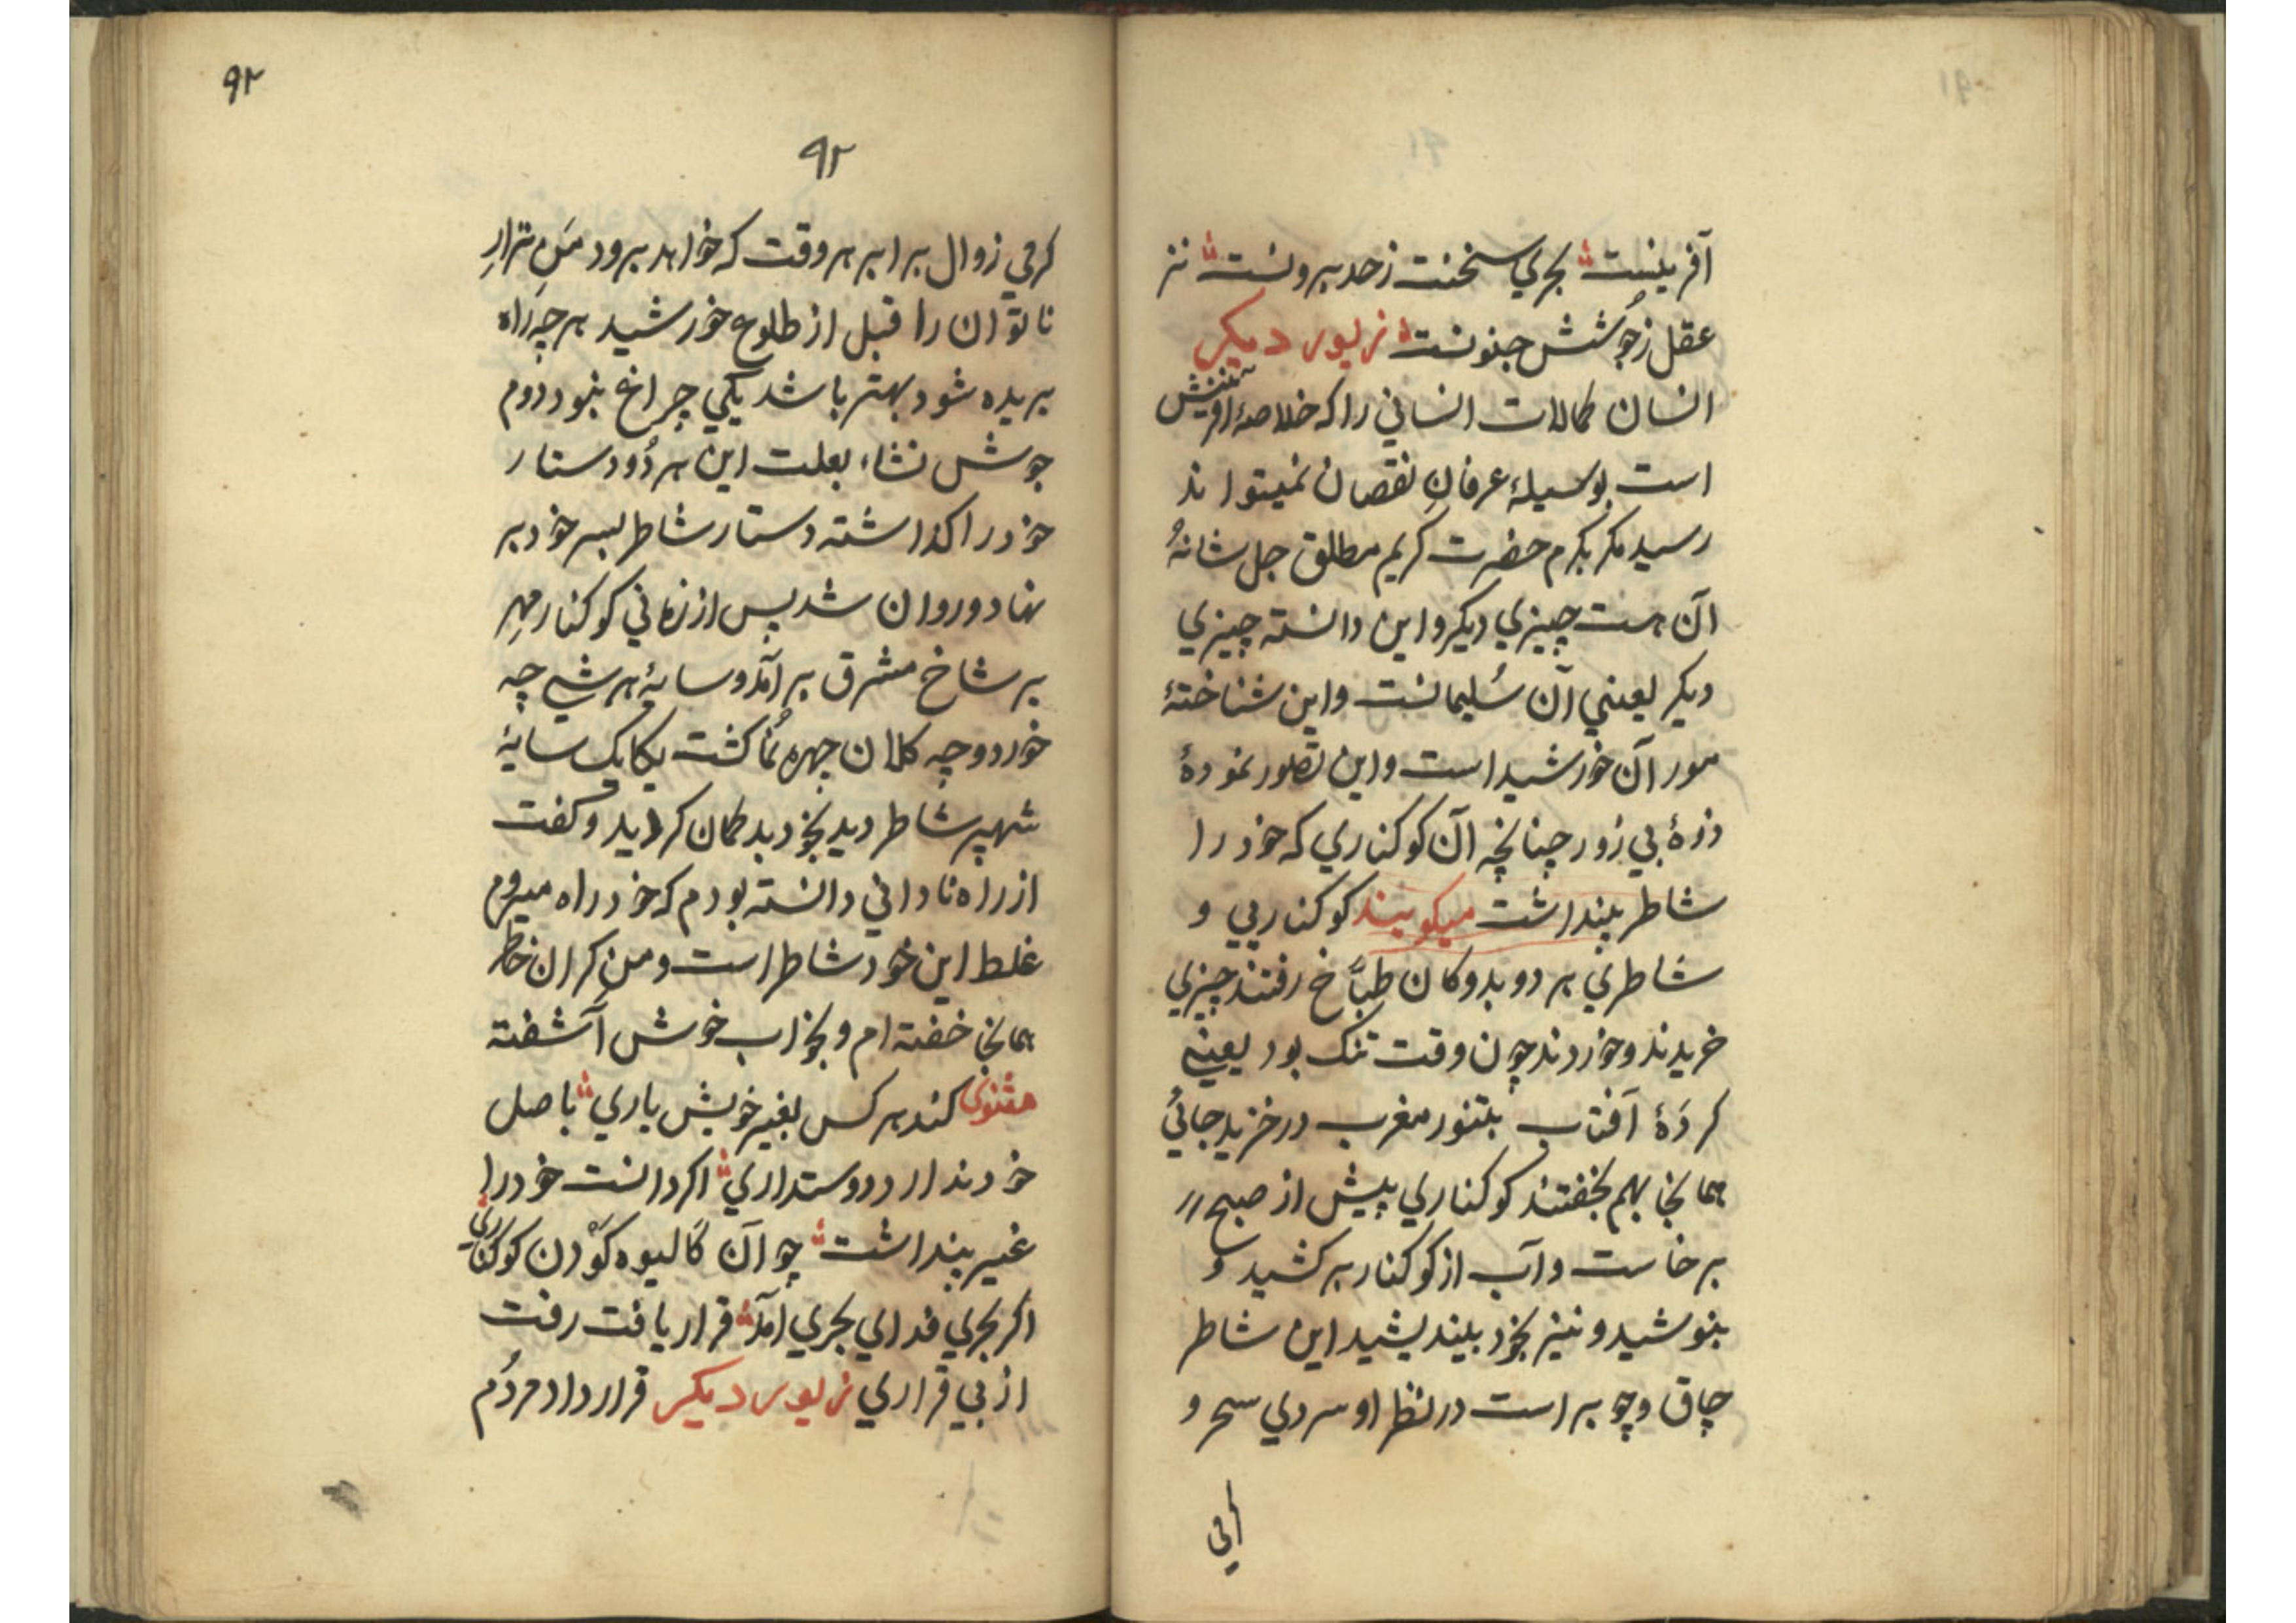 آفرینست ؞ بجری سخنت زحد برونست ؞ نز
عقل زجوشش جنونست ؞ زیور دیکر
انسان کمالات انسانی را که خلاصۀ آفرینش
است بوسیلۀ عرفانِ نقصان نمیتواند
رسید مکر بکرم حضرت کریم مطلق جل شانهُ
آن هست چیزی دیکر و این دانسته چیزی
دیکر یعنی آن سُلیمانست و این شناختۀ
مور آن خورشید است و این تصور نمودۀ
ذرۀ بی زور چنانچه آن کوکناری که خود را
شاطر پنداشت میکویند کوکناریی و
شاطری هر دو بدوکان طبّاخ رفتند چیزی
خریدند و خوردند چون وقت تنک بود یعنی
کردۀ آفتاب بتنور مغرب در خزید جائیُ
همانجا بهم بخفتند کوکناری پیش از صبح
برخاست و آب از کوکنار برکشید و
بنوشید و نیز بخود بیندیشید این شاطر
چاق و چوبر است در نظر او سردی سحر و
کرمی
۹۲
۹۲
کرمی زوال برابر هر وقت که خواهد برود مَنِ نزارِ
ناتوان را قبل از طلوع خورشید هر چه راه
بریده شود بهتر باشد یکی چراغ نبود دوم
جوش نشاء بعلت این هر دُو دستار
خود را کذاشته دستار شاطر بسر خود بر
نهاد و روان شد پس از زمانی کوکنار مهرِ
بر شاخ مشرق برآمد و سایۀ هر شی چه
خورد و چه کلان چهره نُما کشت یکایک سایۀ
شهپر شاطر دید بخود بدکمان کردید و کفت
از راه نادانی دانسته بودم که خود راه میروم
غلط این خود شاطر است و من کران خاطر
همانجا خفته ام و بخواب خوش آشفته
مثنوی کند هر کس بغیر خویش یاری ؞ باصل
خود ندارد دوستداری ؞ اکر دانست خود را
غیر پنداشت ؞ چو آن کالیوه کَوْدن کوکناری
اکر بجری فدای بجری آمد ؞ قرار یافت رفت
از بی قراری زیور دیکر قرارداد مردُم